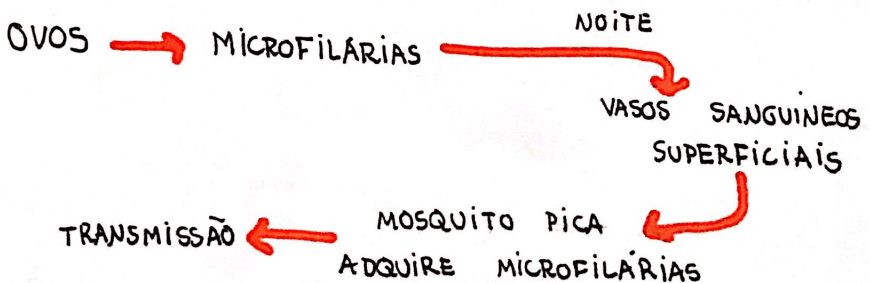 OVOS → MICROFILÁRIAS → NOITE
VASOS SANGUÍNEOS
SUPERFICIAIS
MOSQUITO PICA
ADQUIRE MICROFILÁRIAS
TRANSMISSÃO